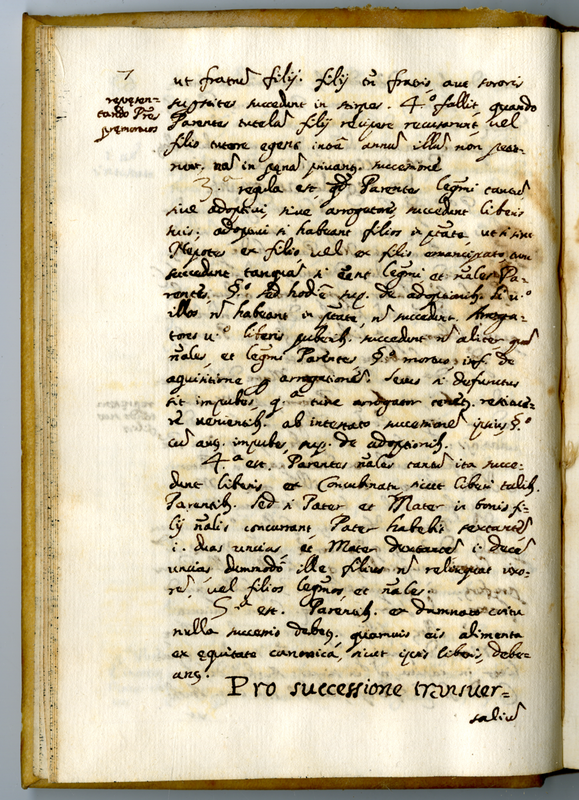 7
represen-
tando Pres
premortuos
ut fratrum filij. filij tn̄ fratris, aut sororis
supstites succedunt in stirpes. 4.º fallit quando
Parentes tutela filij recipere recusarunt, vel
filio tutore egenti intra annum illum non
runt, nā in penā privant. successione
3.ª regula est, qd Parentes legmi tantū
sive adoptivi sive arrogatores, succedunt liberis
suis: adoptivi si habeant filios in ptāte, ut si sint
Nepotes ex filio, vel ex filia emancipato, cum
succedunt tanquā si eent legmi et nāles Pa-
rentes. §.º sed hodiē sup. de adoptionib. Si v.º
illos n̄ habeant in ptāte, n̄ succedunt. Arroga-
tores v.º liberis puberib. succedunt n̄ aliter quā
nāles, et legmi Parentes §. morvo, inf. de
aquisitione p arrogationē. Secus si defunctus
sit impubes q.ª tunc arrogator
re venientib. ab intestato successionē ipsius §.º
cū aug. impubes, sup. de adoptionib.
4.ª est, Parentes nāles tantū ita succe-
dunt liberis ex Concubinatu sicut liberi talib.
Parentib. Sed si Pater et Mater in bonis fi-
lij nālis concurrant, Pater habebit sextantē
i. duas uncias, et Mater dextantē i. decē
uncias dummodō ille filius n̄ relinquat uxo-
rē, vel filios legmos, et nāles.
5.ª est. Parentib. ex damnato coitu
nulla successio debet. quamvis eis alimenta
ex equitate canonica, sicut ipsis liberis, debe-
ant.
Pro successione transver=
saliū